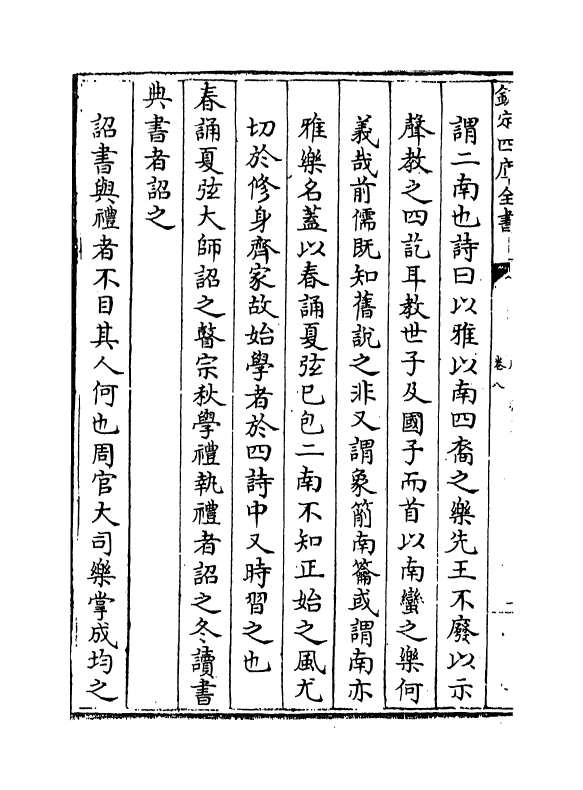 欽定四庫全書
卷八
謂二南也詩曰以雅以南四裔之樂先王不廢以示
聲教之四訖耳教世子及國子而首以南蠻之樂何
義哉前儒既知舊說之非又謂象箾南籥或謂南亦
雅樂名蓋以春誦夏弦已包二南不知正始之風尤
切於修身齊家故始學者於四詩中又時習之也
春誦夏弦大師詔之瞽宗秋學禮執禮者詔之冬讀書
典書者詔之
詔書與禮者不目其人何也周官大司樂掌成均之